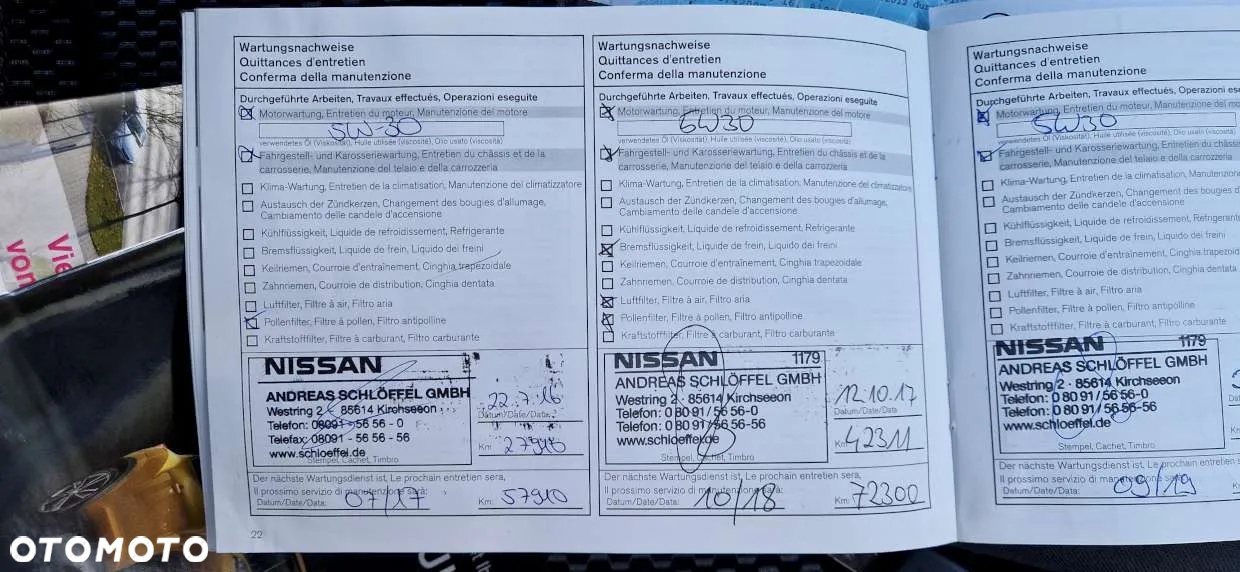 Wartungsnachweise
Quittances d'entretien
Conferma della manutenzione
Durchgeführte Arbeiten, Travaux effectués, Operazioni eseguite
Motorwartung, Entretien du moteur, Manutenzione del motore
5W-30
verwendetes Öl (Viskosität), Huile utilisée (viscosité), Olio usato (viscosità)
Fahrgestell- und Karosseriewartung, Entretien du châssis et de la
carrosserie, Manutenzione del telaio e della carrozzeria
Klima-Wartung, Entretien de la climatisation, Manutenzione del climatizzatore
Austausch der Zündkerzen, Changement des bougies d'allumage,
Cambiamento delle candele d'accensione
Kühlflüssigkeit, Liquide de refroidissement, Refrigerante
Bremsflüssigkeit, Liquide de frein, Liquido dei freini
Keilriemen, Courroie d'entraînement, Cinghia trapezoidale
Zahnriemen, Courroie de distribution, Cinghia dentata
Luftfilter, Filtre à air, Filtro aria
Pollenfilter, Filtre à pollen, Filtro antipolline
Kraftstofffilter, Filtre à carburant, Filtro carburante
NISSAN
ANDREAS SCHLÖFFEL GMBH
Westring 2 · 85614 Kirchseeon
Telefon: 08091 - 56 56 - 0
Telefax: 08091 - 56 56 - 56
www.schloeffel.de
Stempel, Cachet, Timbro
22.7.16
Datum/Date/Data
Km:
Der nächste Wartungsdienst ist, Le prochain entretien sera,
Il prossimo servizio di manutenzione sarà:
Datum/Date/Data: 07/17 Km: 57910
22
Wartungsnachweise
Quittances d'entretien
Conferma della manutenzione
Durchgeführte Arbeiten, Travaux effectués, Operazioni eseguite
Motorwartung, Entretien du moteur, Manutenzione del motore
5W30
verwendetes Öl (Viskosität), Huile utilisée (viscosité), Olio usato (viscosità)
Fahrgestell- und Karosseriewartung, Entretien du châssis et de la
carrosserie, Manutenzione del telaio e della carrozzeria
Klima-Wartung, Entretien de la climatisation, Manutenzione del climatizzatore
Austausch der Zündkerzen, Changement des bougies d'allumage,
Cambiamento delle candele d'accensione
Kühlflüssigkeit, Liquide de refroidissement, Refrigerante
Bremsflüssigkeit, Liquide de frein, Liquido dei freini
Keilriemen, Courroie d'entraînement, Cinghia trapezoidale
Zahnriemen, Courroie de distribution, Cinghia dentata
Luftfilter, Filtre à air, Filtro aria
Pollenfilter, Filtre à pollen, Filtro antipolline
Kraftstofffilter, Filtre à carburant, Filtro carburante
NISSAN 1179
ANDREAS SCHLÖFFEL GMBH
Westring 2 · 85614 Kirchseeon
Telefon: 0 80 91 / 56 56-0
Telefax: 0 80 91 / 56 56-56
www.schloeffel.de
Stempel, Cachet, Timbro
12.10.17
Datum/Date/Data
Km: 42311
Der nächste Wartungsdienst ist, Le prochain entretien sera,
Il prossimo servizio di manutenzione sarà:
Datum/Date/Data: 10/18 Km: 72300
Wartungsnachweise
Quittances d'entretien
Conferma della manutenzione
Durchgeführte Arbeiten, Travaux effectués, Operazioni
Motorwartung, Entretien du moteur, Manutenzione del
5W30
verwendetes Öl (Viskosität), Huile utilisée (viscosité), Olio usato (viscosità)
Fahrgestell- und Karosseriewartung, Entretien du
carrosserie, Manutenzione del telaio e della carrozzeria
Klima-Wartung, Entretien de la climatisation,
Austausch der Zündkerzen, Changement des bougies
Cambiamento delle candele d'accensione
Kühlflüssigkeit, Liquide de refroidissement, Refrigerante
Bremsflüssigkeit, Liquide de frein, Liquido dei freini
Keilriemen, Courroie d'entraînement, Cinghia
Zahnriemen, Courroie de distribution, Cinghia dentata
Luftfilter, Filtre à air, Filtro aria
Pollenfilter, Filtre à pollen, Filtro antipolline
Kraftstofffilter, Filtre à carburant, Filtro carburante
NISSAN 1179
ANDREAS SCHLÖFFEL GMBH
Westring 2 · 85614 Kirchseeon
Telefon: 0 80 91 / 56 56-0
Telefax: 0 80 91 / 56 56-56
www.schloeffel.de
Stempel, Cachet, Timbro
Der nächste Wartungsdienst ist, Le prochain entretien
Il prossimo servizio di manutenzione sarà:
Datum/Date/Data: 09/19
OTOMOTO